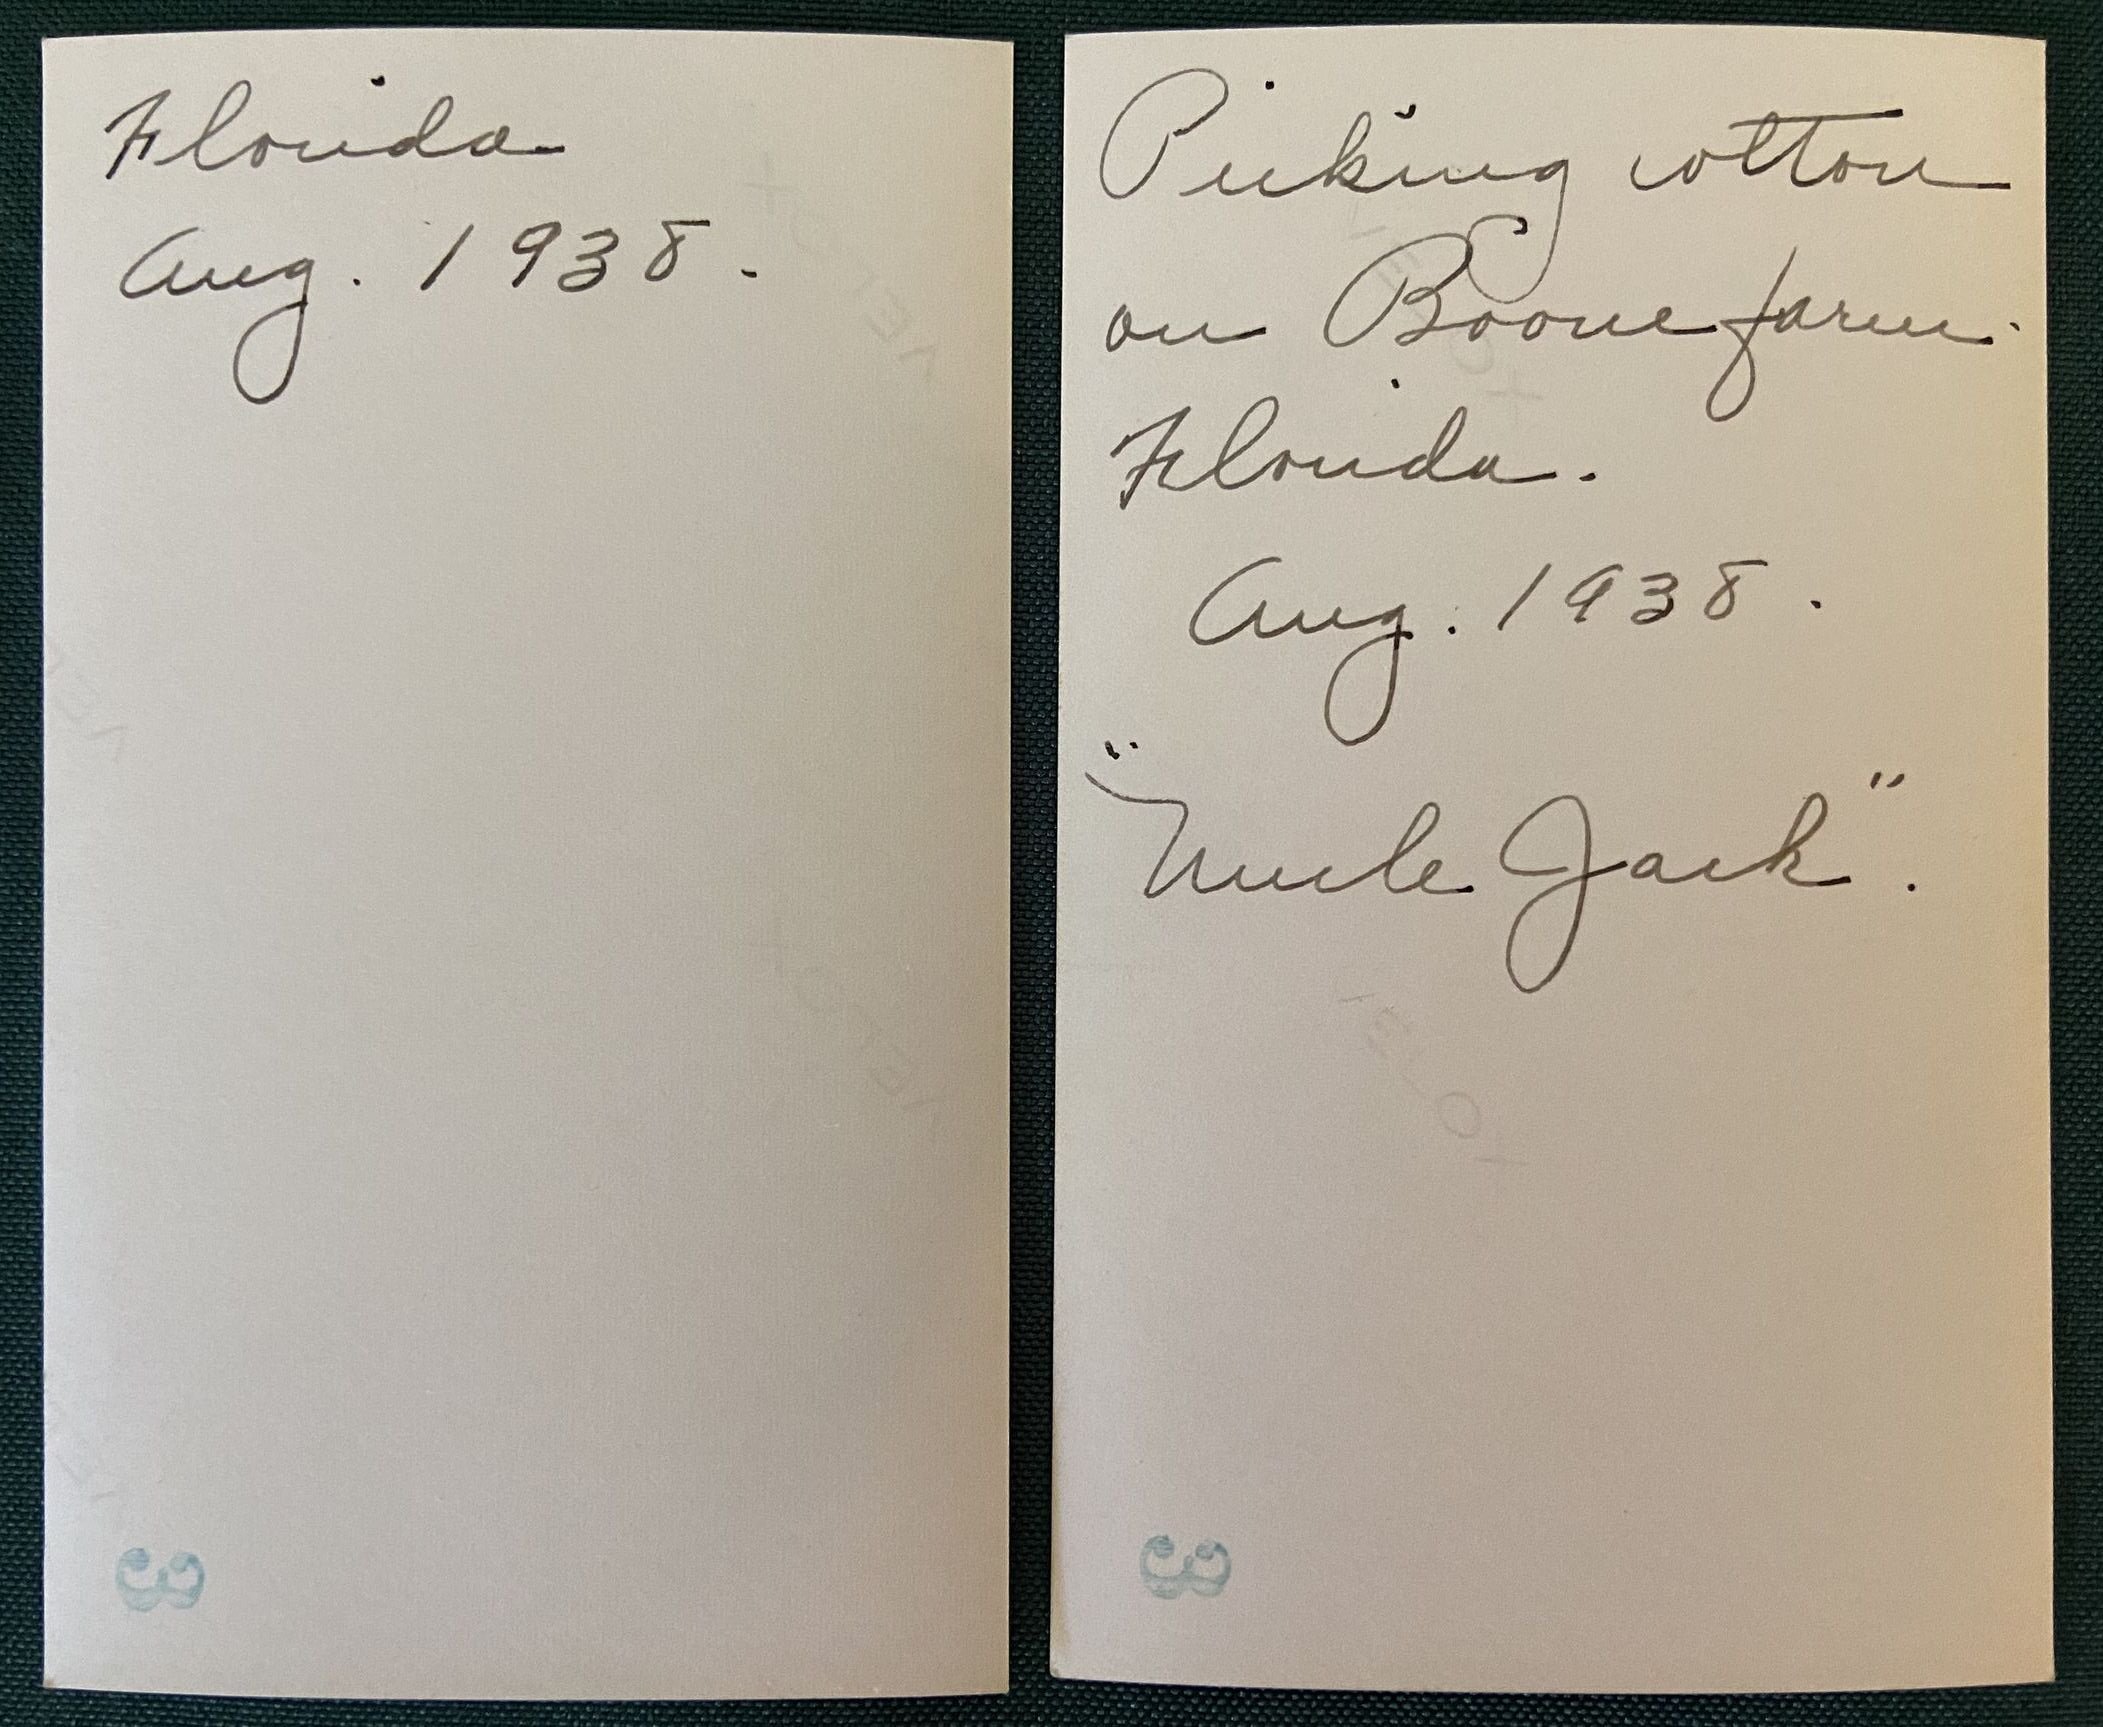 Florida
Aug. 1938.
3
Picking cotton
on Boone farm.
Florida.
Aug. 1938.
"Uncle Jack".
3